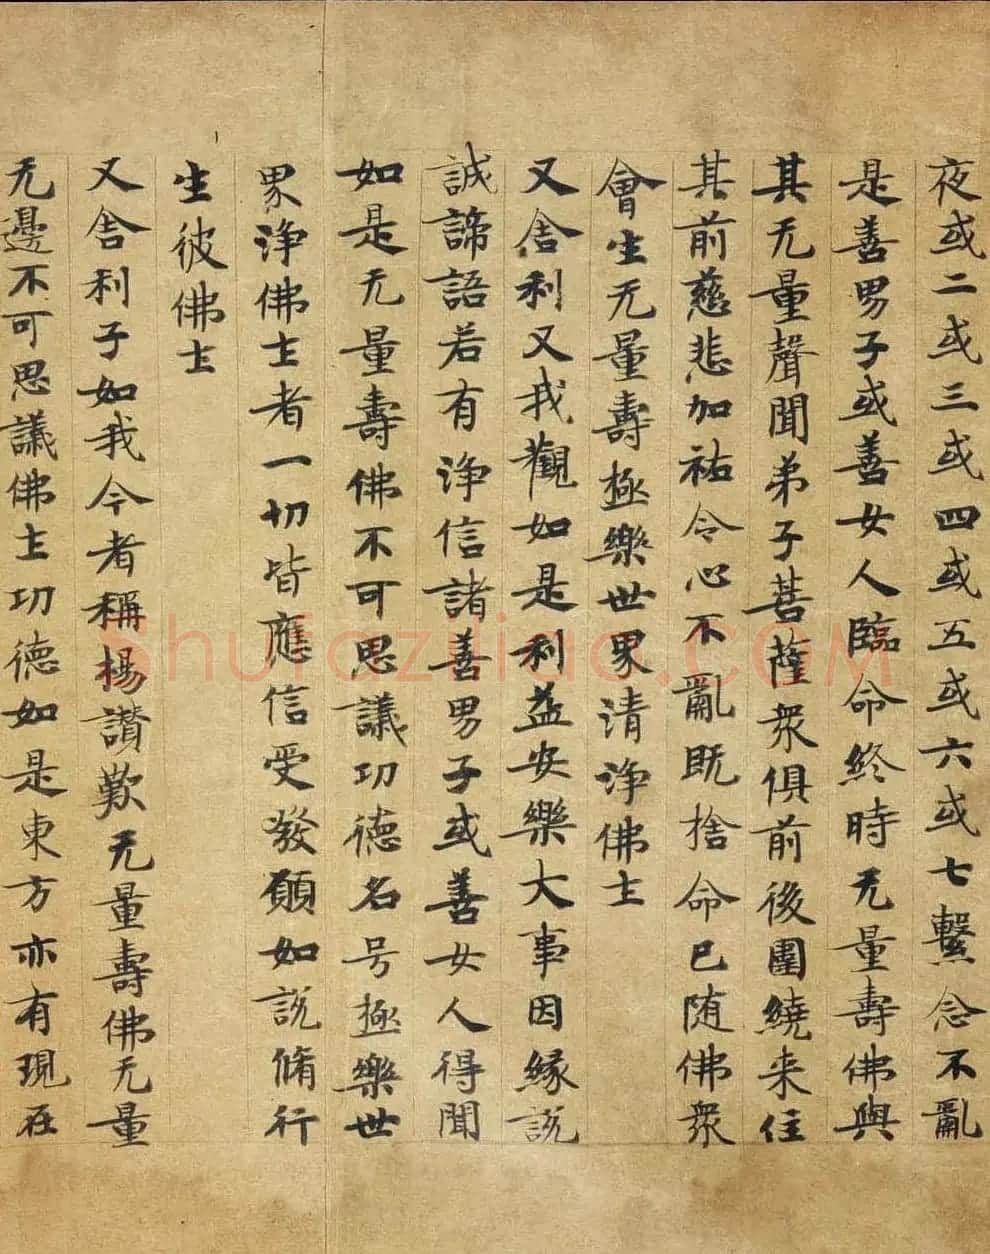 夜或二或三或四或五或六或七繫念不亂
是善男子或善女人臨命終時无量壽佛與
其无量聲聞弟子菩薩衆俱前後圍繞来住
其前慈悲加祐令心不亂既捨命已随佛衆
會生无量壽極樂世界清淨佛土
又舍利又我觀如是利益安樂大事因緣說
誠諦語若有淨信諸善男子或善女人得聞
如是无量壽佛不可思議功德名号極樂世
界淨佛土者一切皆應信受發願如說脩行
生彼佛土
又舍利子如我今者稱楊讃歎无量壽佛无量
无邊不可思議佛土功德如是東方亦有現在
shufaziliao.COM